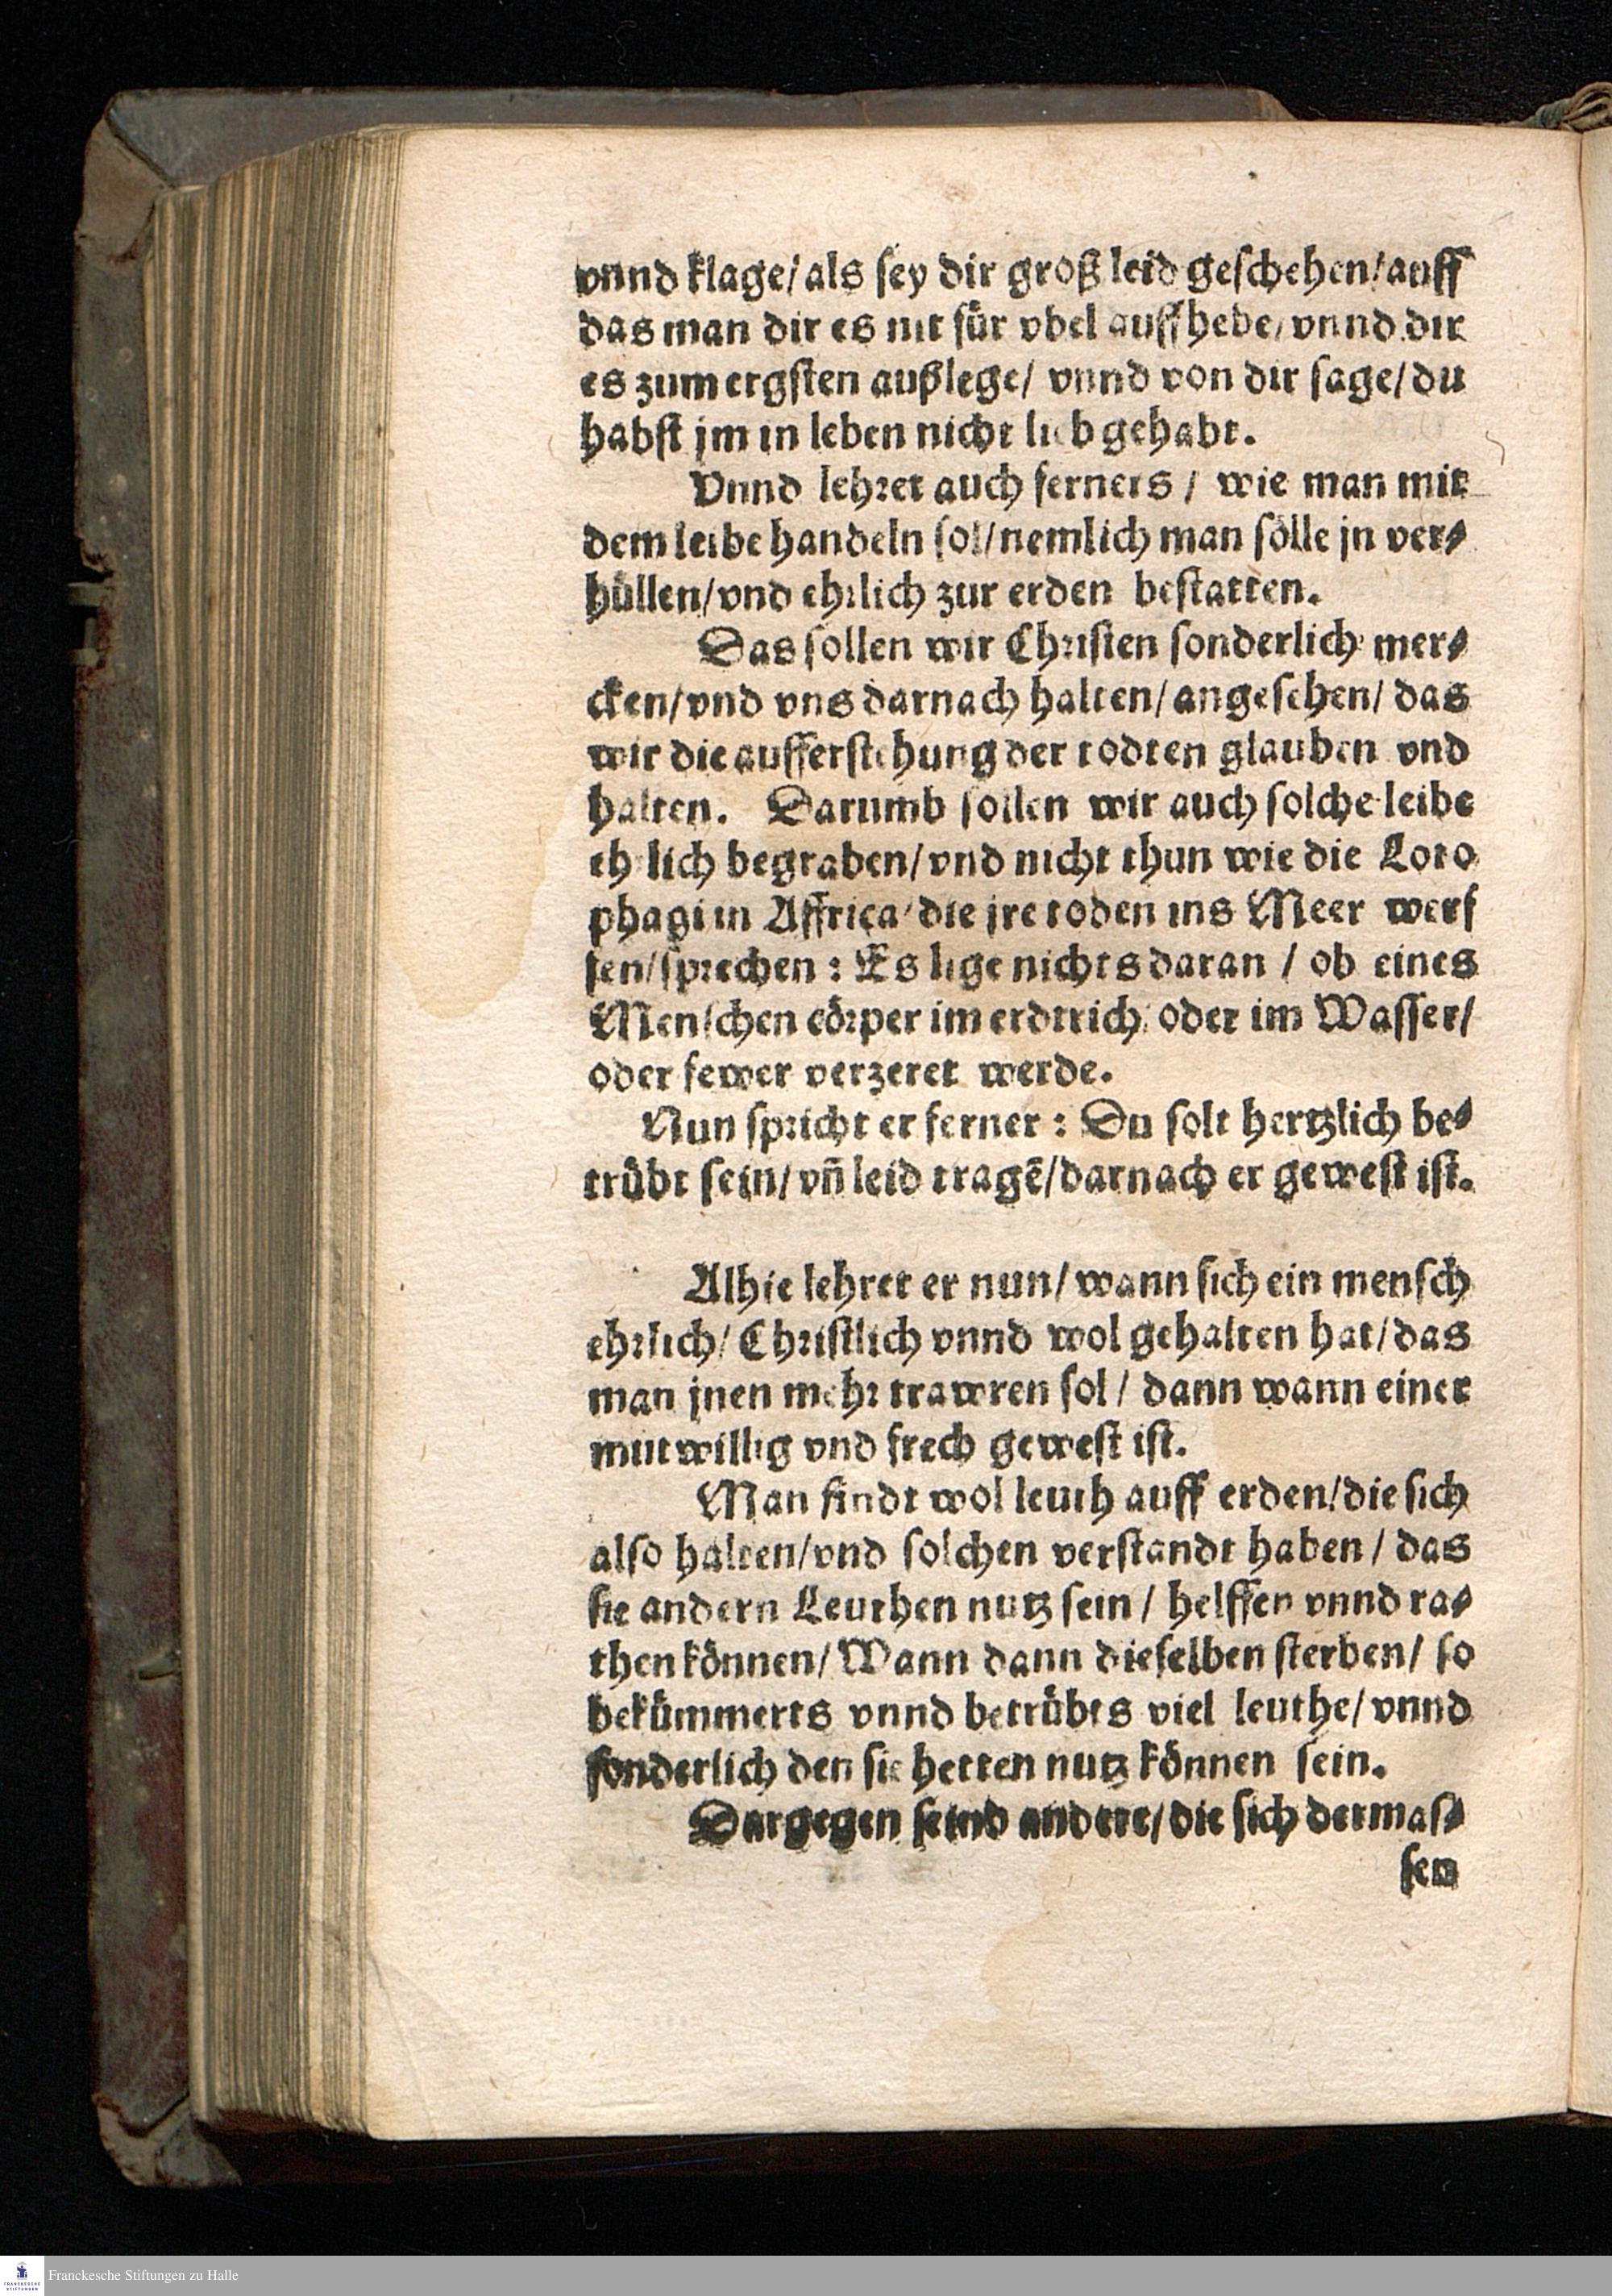 vnnd klage/als sey dir groß leid geschehen/auff
das man dir es nit für vbel auffhebe/vnnd dir
es zum ergsten außlege/ vnnd von dir sage/du
habst jm in leben nicht lieb gehabt.
Vnnd lehret auch ferners / wie man mit
dem leibe handeln sol/nemlich man sölle jn ver⸗
hüllen/vnd ehrlich zur erden bestatten.
Das sollen wir Christen sonderlich mer⸗
cken/vnd vns darnach halten/angesehen/ das
wir die aufferstehung der todten glauben vnd
halten. Darumb sollen wir auch solche leibe
ehrlich begraben/vnd nicht thun wie die Loto
phagi in Affrica/die jre toden ins Meer werf
fen/sprechen: Es lige nichts daran / ob eines
Menschen cörper im erdtrich/ oder im Wasser/
oder fewer verzeret werde.
Nun spricht er ferner: Du solt hertzlich be⸗
trübt sein/vñ leid tragẽ/darnach er gewest ist.
Alhie lehret er nun/wann sich ein mensch
ehrlich/Christlich vnnd wol gehalten hat/das
man jnen mehr trawren sol/ dann wann einer
mutwillig vnd frech gewest ist.
Man findt wol leuth auff erden/die sich
also halten/vnd solchen verstandt haben/ das
sie andern Leuthen nutz sein/ helffen vnnd ra⸗
then können/Wann dann dieselben sterben/ so
bekümmerts vnnd betrübts viel leuthe/vnnd
sonderlich den sie hetten nutz können sein.
Dargegen seind andere/die sich dermas⸗
sen
Franckesche Stiftungen zu Halle
FRANCKESCHE
STIFTUNGEN